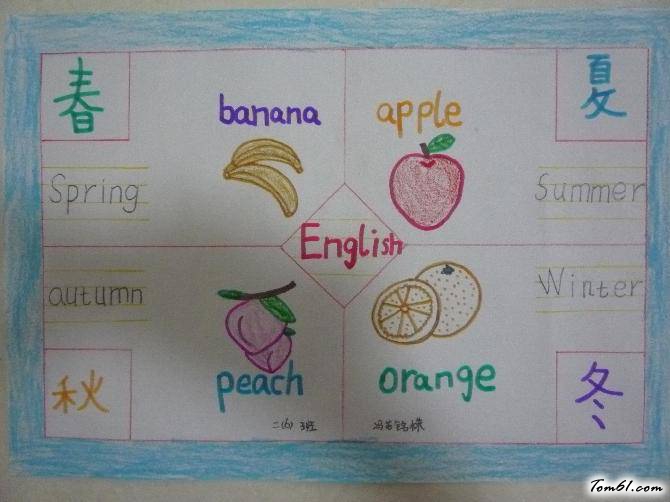 春
banana
apple
夏
Spring
Summer
English
autumn
Winter
秋
peach
orange
冬
Tom61.com